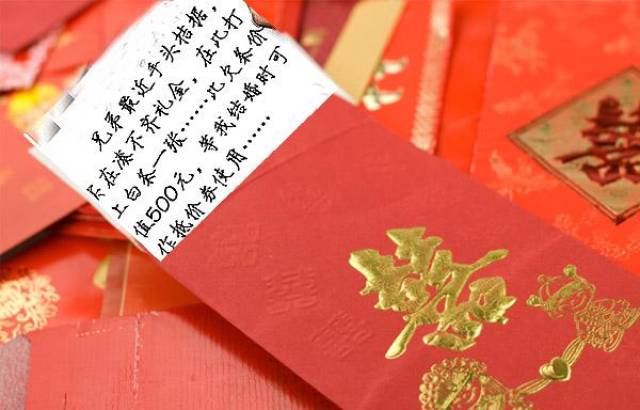 兄弟最近手头拮据，
实在凑不齐礼金，在此打
上白条一张……此欠条价
值500元，等我结婚时可
作抵价券使用……
囍
囍